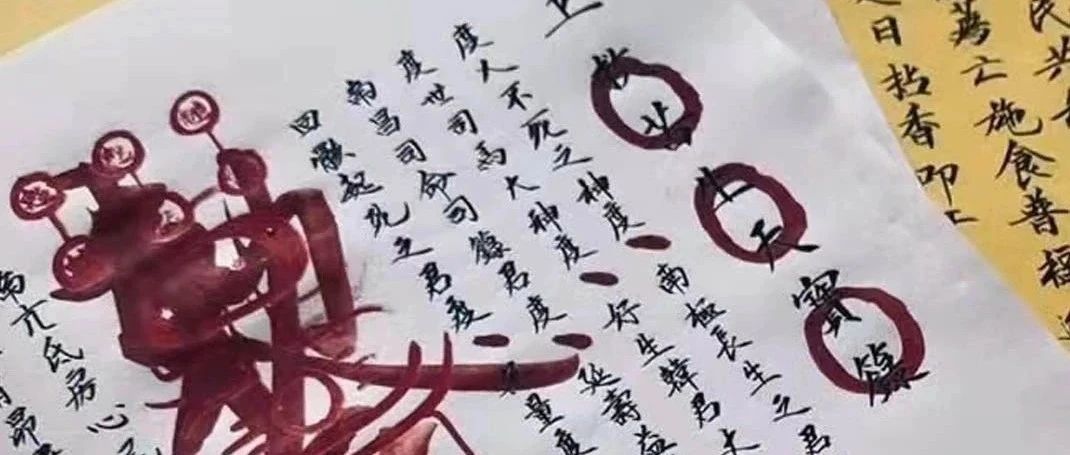 民共
薦亡施食普福
日拈香叩上
上
救苦生天寶籙
度人不死之神度 南極長生之君
度世司馬大神度 好生韓君丈
南昌司命司籙君度 延壽益
回骸起死之君度 量度
亢氐房心
昴